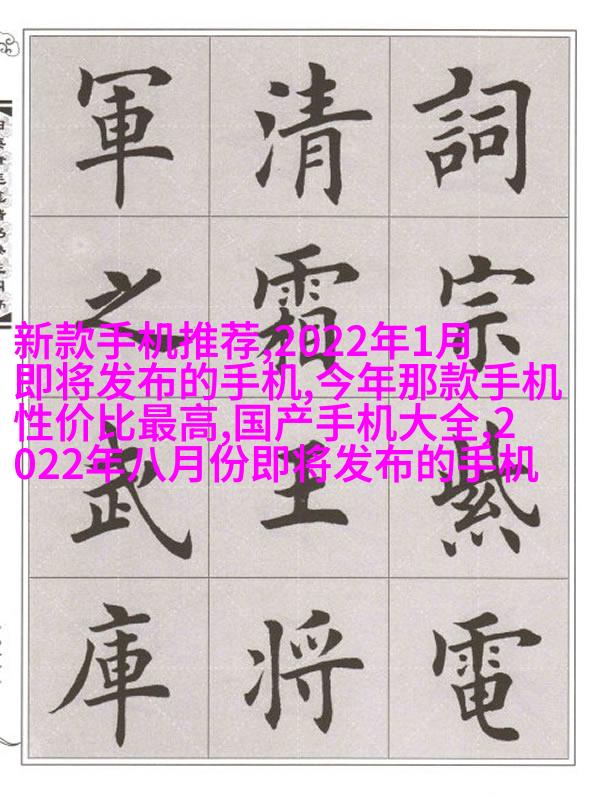 詞宗紫電
清霜王將
軍之武庫
新款手机推荐,2022年1月
即将发布的手机,今年那款手机
性价比最高,国产手机大全,2
022年八月份即将发布的手机